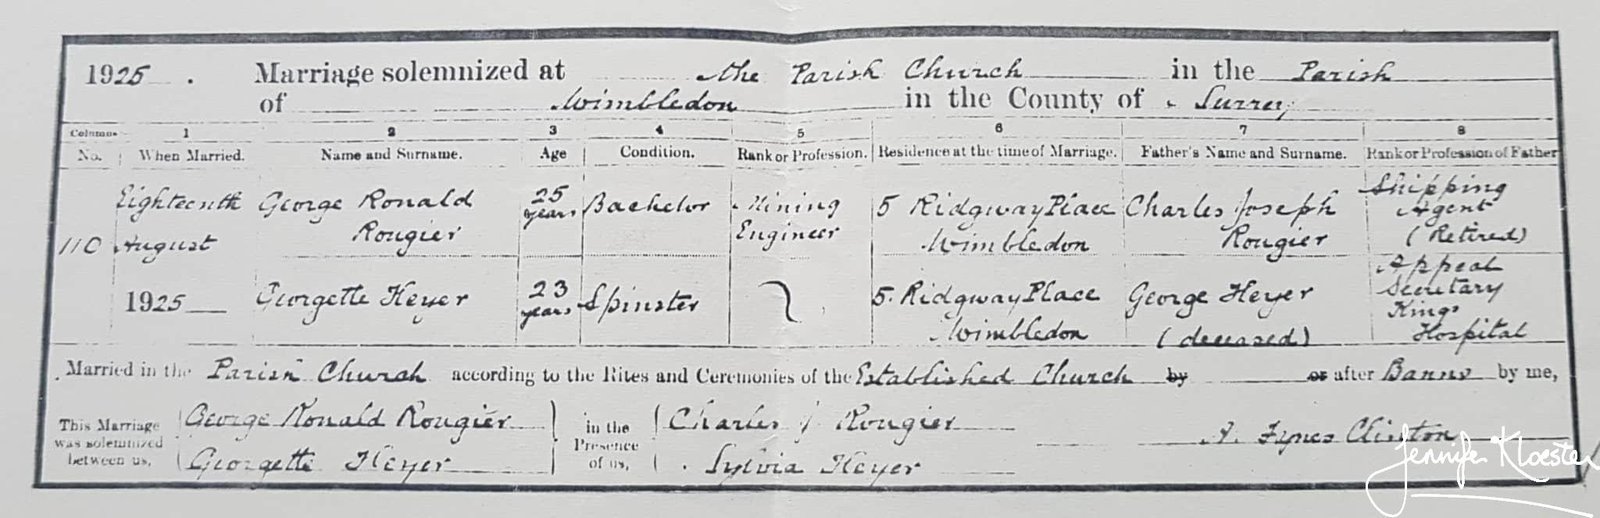 1925. Marriage solemnized at the Parish Church in the Parish
of Wimbledon in the County of Surrey
Columns 1 2 3 4 5 6 7 8
No. When Married. Name and Surname. Age Condition. Rank or Profession. Residence at the time of Marriage. Father's Name and Surname. Rank or Profession of Father
110 Eighteenth August 1925
George Ronald Rougier
25 years
Bachelor
Mining Engineer
5 Ridgway Place Wimbledon
Charles Joseph Rougier
Shipping Agent (Retired)
Georgette Heyer
23 years
Spinster
5. Ridgway Place Wimbledon
George Heyer (deceased)
Appeal Secretary Kings Hospital
Married in the Parish Church according to the Rites and Ceremonies of the Established Church by or after Banns by me,
This Marriage was solemnized between us,
George Ronald Rougier
Georgette Heyer
in the Presence of us,
Charles J Rougier
Sylvia Heyer
A. Fynes Clinton
Jennifer Kloester